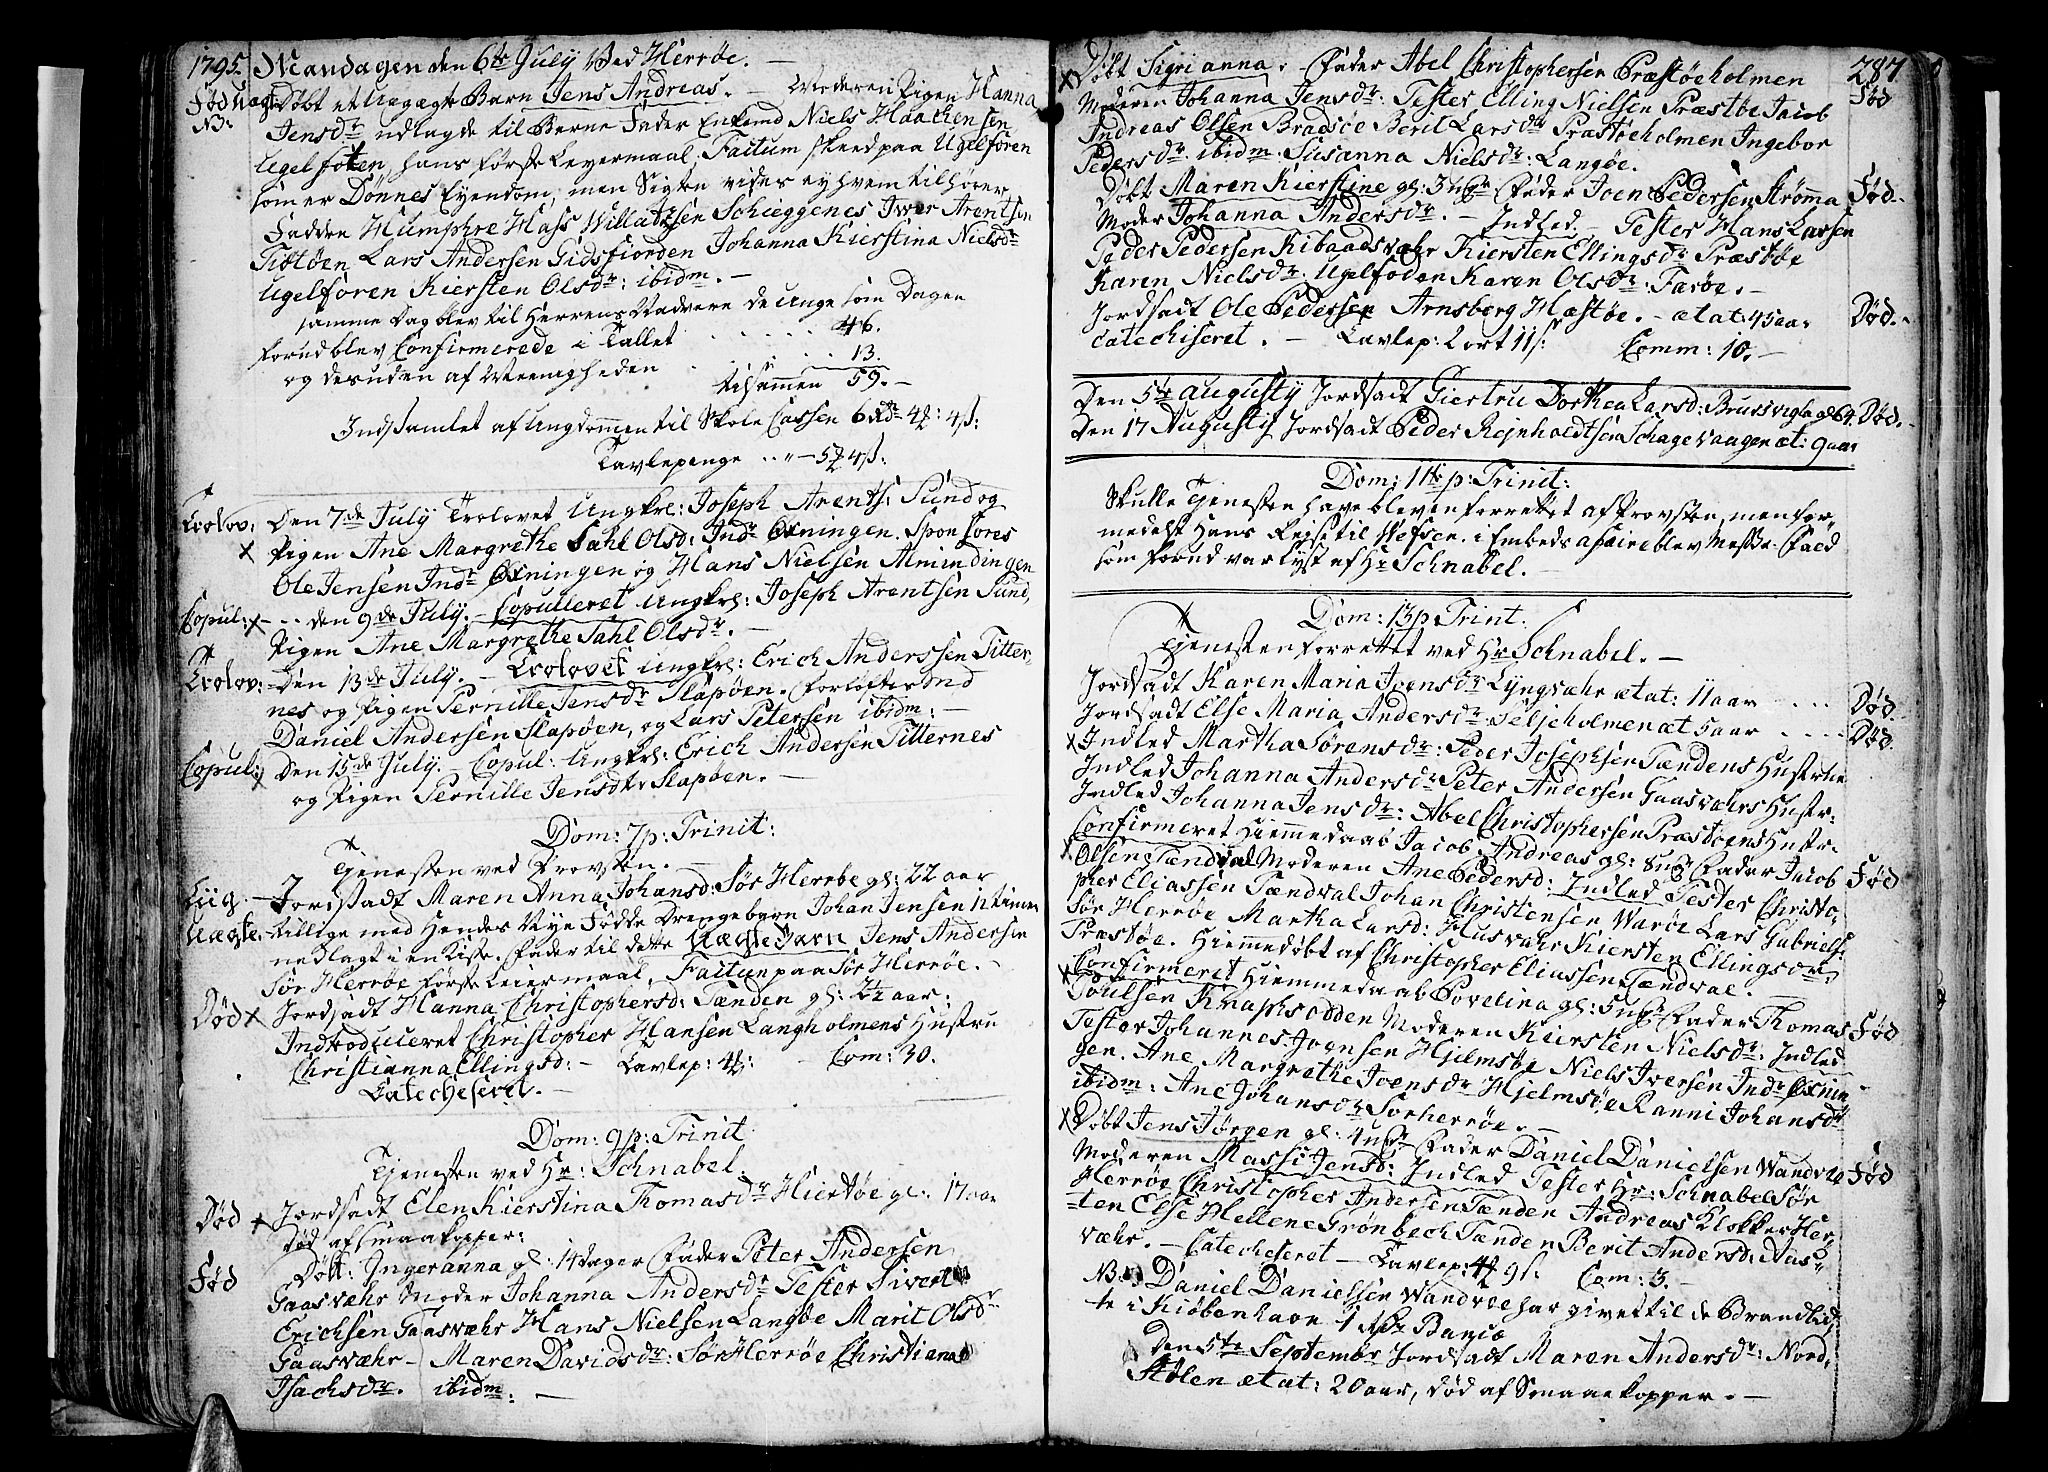 1795. Mandagen den 6te July Ved Herrøe. —
Fød Uægte Døbt et Uægte Barn Jens Andreas. — Moderen Pigen Hanna
NB: Jensdr udlagde til Barne Fader Enkemd Niels Haachensen
Ugelfoten, hans første Leyermaal, Factum skeed paa Ugelføren
som er Dønnes Eyendom, men Sigten vides ey hvem tilhører
Fadder Humphre Hass Willatzsen Schieggenes Iver Arentsen
Tiøtøen Lars Andersen Gidsfiorden Johanna Kierstina Nielsdr
Ugelføren Kiersten Olsdr: ibidm. —
samme Dag blev til Herrens Nadvere de Unge som Dagen
forud blev Confirmerede i Tallet . . . . . 46.
og desuden af Meenigheden . . . . 13.
tilsammen 59. —
Indsamlet af Ungdommen til Skole Cassen 6 rdr 4 : 4 s:
Tavlepenge . . „ — 5 4 s:
Trolov: Den 7de July Trolovet Ungkrl: Joseph Arents: Sund og
x Pigen Ane Margrethe Sahl Olsd: Indr Øxningen. Sponsores
Ole Jensen Indr Øxningen og Hans Nielsen Almindingen
Copul: x — . . den 9de July. — Copulleret Ungkrl: Joseph Arentsen Sund,
Pigen Ane Margrethe Sahl Olsdr. —
Trolov: Den 13de July. — Trolovet Ungkrl: Erich Anderssen Titter,
nes og Pigen Pernille Jensdr Slapøen. Forløftesmd
Daniel Andersen Slapøen, og Lars Petersen ibidm: —
Copul: x Den 15de July. — Copul: Ungkrl: Erich Andersen Titternes
og Pigen Pernille Jensdtr Slapøen. —
Dom: 7 p: Trinit:
Tjenesten ved Provsten. —
Liig. — Jordsadt Maren Anna Johansd: Sør Herrøe gl: 22 aar
Uægte. tillige med Hendes Nye Fødde Drengebarn Johan Jensen 12 timer
nedlagt i en Kiste. Fader til dette Uægte Barn Jens Andersen
Sør Herrøe første Leiermaal, Factum paa Sør Herrøe. —
Død x Jordsadt Hanna Christophersd: Tænden gl: 2½ aar:
Introduceret Christopher Hansen Langholmens Hustru
Christianna Ellingsd: — Tavlep: 4 : Com: 30.
Catecheseret. —
Dom: 9 p: Trinit
Tjenesten ved Hr: Schnabel.
Død x Jordsadt Elen Kierstina Thomasdr Hiertøe gl: 17 aar
død af smaakopper:
Fød Døbt: Ingeranna gl: 14 dager Fader Peter Andersen
Gaasvæhr Moder Johanna Andersdr Tester Sivert
Erichsen Gaasvæhr Hans Nielsen Langøe Marit Olsdr
Gaasvæhr — Maren Davidsdr: Sør Herrøe Christiana
Isachsdr. ibidm: —
287
x Døbt Sigrianna. — Fader Abel Christophersen Præstøeholmen Fød
Moderen Johanna Jensdr: Tester Elling Nielsen Præstøe Jacob
Andreas Olsen Bradsøe Beril Larsdr Præstøeholmen Ingebor
Pedersdr: ibidm. Susanna Nielsdr: Langøe.
Døbt Maren Kierstine gl: 3 ugr Fader Joen Pedersen Strømma Fød.
Moder Johanna Andersdr. — Indled. Tester Hans Larsen
Peder Pedersen Kibaadsvæhr Kiersten Ellingsdr Præstøe
Karen Nielsdr: Ugelfoden Karen Olsdr: Færøe. —
Jordsadt Ole Pedersen Arnsberg Hæstøe. — ætat: 45 aar Død. —
Catechiseret. — Tavlep: 2 ort 11 s: Comm: 10. —
Den 5te Augusty Jordsadt Giertru Dorthea Larsd: Brunsvigla gl 64. Død.
Den 17 Augusty Jordsadt Peder Rejnholdtsen Schagevaagen æt: 9 aar
Dom: 11te p: Trinit:
Skulle Tjenesten have bleven forrettet af Provsten, men for,
medelst Hans Rejse til Wefsen i Embeds affaire blev Messe-Fald
som forud var lyst af Hr Schnabel. —
Dom: 13 p Trint:
Tjenesten forrettet ved Hr Schnabel. —
Jordsadt Karen Maria Ivensdr Lyngvæhr ætat: 11 aar . . . . Død
Jordsadt Else Maria Andersdr Seljeholmen æt 5 aar . . . . Død.
x Indled Martha Sørensdr: Peder Josephsen Tændens Hustrue
Indled Johanna Andersdr Peter Andersen Gaasvæhrs Hustr:
Indled Johanna Jensdr: Abel Christophersen Præstøens Hustr:
x Confirmeret Hiemmedaab Jacob Andreas gl: 8 ugr Fader Jacob Fød
Olsen Tændval Moderen Ane Pedersd: Indled Tester Christo,
pher Eliassen Tændval Johan Christensen Warøe Lars Gabrielss:
Sør Herrøe Martha Larsd: Husvæhr Kiersten Ellingsdr
Præstøe. Hiemmedøbt af Christopher Eliassen Tændval.
x Confirmeret Hiemmedaab Povelina gl: 5 ugr Fader Thomas Fød
Poulsen Knaphsodden Moderen Kiersten Nielsdr: Indled
Tester Johannes Joensen Hjelmsøe Niels Iversen Indr Øxnin
gen. Ane Margrethe Ivensdr Hjelmsøe Ranni Johansdr
ibidm: Ane Johansdr Sørherrøe. —
x Døbt Jens Jørgen gl: 4 ugr Fader Daniel Danielsen Wandvee Fød
Moderen Massi Jensd: Indled Tester Hr: Schnabel Sør
Herrøe Christopher Andersen Tænden Andreas Klokker Her,
-ten Else Hellene Grønbech Tænden Berit Andersd: Aus-
væhr. — Catecheseret — Tavlep: 4 9 s. Com: 3. —
NB. Daniel Danielssen Wandvee har givet til de Brandlid,
te i Kiøbenhavn 1 rdr Banco
Den 5te Septembr Jordsadt Maren Andersdr: Nord,
Stølen ætat: 20 aar, død af Smaaekopper. —